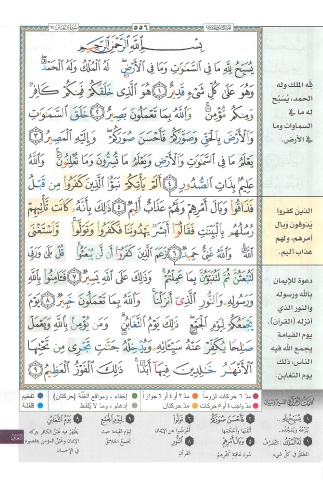 ٥٥٦
بِسْمِ اللَّهِ الرَّحْمَٰنِ الرَّحِيمِ
يُسَبِّحُ لِلَّهِ مَا فِي السَّمَاوَاتِ وَمَا فِي الْأَرْضِ لَهُ الْمُلْكُ وَلَهُ الْحَمْدُ
وَهُوَ عَلَىٰ كُلِّ شَيْءٍ قَدِيرٌ ١ هُوَ الَّذِي خَلَقَكُمْ فَمِنكُمْ كَافِرٌ
وَمِنكُم مُّؤْمِنٌ وَاللَّهُ بِمَا تَعْمَلُونَ بَصِيرٌ ٢ خَلَقَ السَّمَاوَاتِ
وَالْأَرْضَ بِالْحَقِّ وَصَوَّرَكُمْ فَأَحْسَنَ صُوَرَكُمْ وَإِلَيْهِ الْمَصِيرُ ٣
يَعْلَمُ مَا فِي السَّمَاوَاتِ وَالْأَرْضِ وَيَعْلَمُ مَا تُسِرُّونَ وَمَا تُعْلِنُونَ وَاللَّهُ
عَلِيمٌ بِذَاتِ الصُّدُورِ ٤ أَلَمْ يَأْتِكُمْ نَبَأُ الَّذِينَ كَفَرُوا مِن قَبْلُ
فَذَاقُوا وَبَالَ أَمْرِهِمْ وَلَهُمْ عَذَابٌ أَلِيمٌ ٥ ذَٰلِكَ بِأَنَّهُ كَانَت تَّأْتِيهِمْ
رُسُلُهُم بِالْبَيِّنَاتِ فَقَالُوا أَبَشَرٌ يَهْدُونَنَا فَكَفَرُوا وَتَوَلَّوا وَّاسْتَغْنَى
اللَّهُ وَاللَّهُ غَنِيٌّ حَمِيدٌ ٦ زَعَمَ الَّذِينَ كَفَرُوا أَن لَّن يُبْعَثُوا قُلْ بَلَىٰ وَرَبِّي
لَتُبْعَثُنَّ ثُمَّ لَتُنَبَّؤُنَّ بِمَا عَمِلْتُمْ وَذَٰلِكَ عَلَى اللَّهِ يَسِيرٌ ٧ فَآمِنُوا بِاللَّهِ
وَرَسُولِهِ وَالنُّورِ الَّذِي أَنزَلْنَا وَاللَّهُ بِمَا تَعْمَلُونَ خَبِيرٌ ٨ يَوْمَ
يَجْمَعُكُمْ لِيَوْمِ الْجَمْعِ ذَٰلِكَ يَوْمُ التَّغَابُنِ وَمَن يُؤْمِن بِاللَّهِ وَيَعْمَلْ
صَالِحًا يُكَفِّرْ عَنْهُ سَيِّئَاتِهِ وَيُدْخِلْهُ جَنَّاتٍ تَجْرِي مِن تَحْتِهَا
الْأَنْهَارُ خَالِدِينَ فِيهَا أَبَدًا ذَٰلِكَ الْفَوْزُ الْعَظِيمُ ٩
لله الملك وله
الحمد، يُسَبِّح
له ما في
السماوات وما
في الأرض.
الذين كفروا
يذوقون وبال
أمرهم، ولهم
عذاب أليم.
دعوة للإيمان
بالله ورسوله
والنور الذي
أنزله (القرآن)،
يوم القيامة
يجمع الله فيه
الناس، ذلك
يوم التغابن.
مدّ ٦ حركات لزوماً مدّ ٢ أو ٤ أو ٦ جوازاً إخفاء، ومواقع الغنّة (حركتان) تفخيم
مدّ واجب ٤ أو ٥ حركات مدّ حركتان إدغام، وما لا يُلفَظ قلقلة